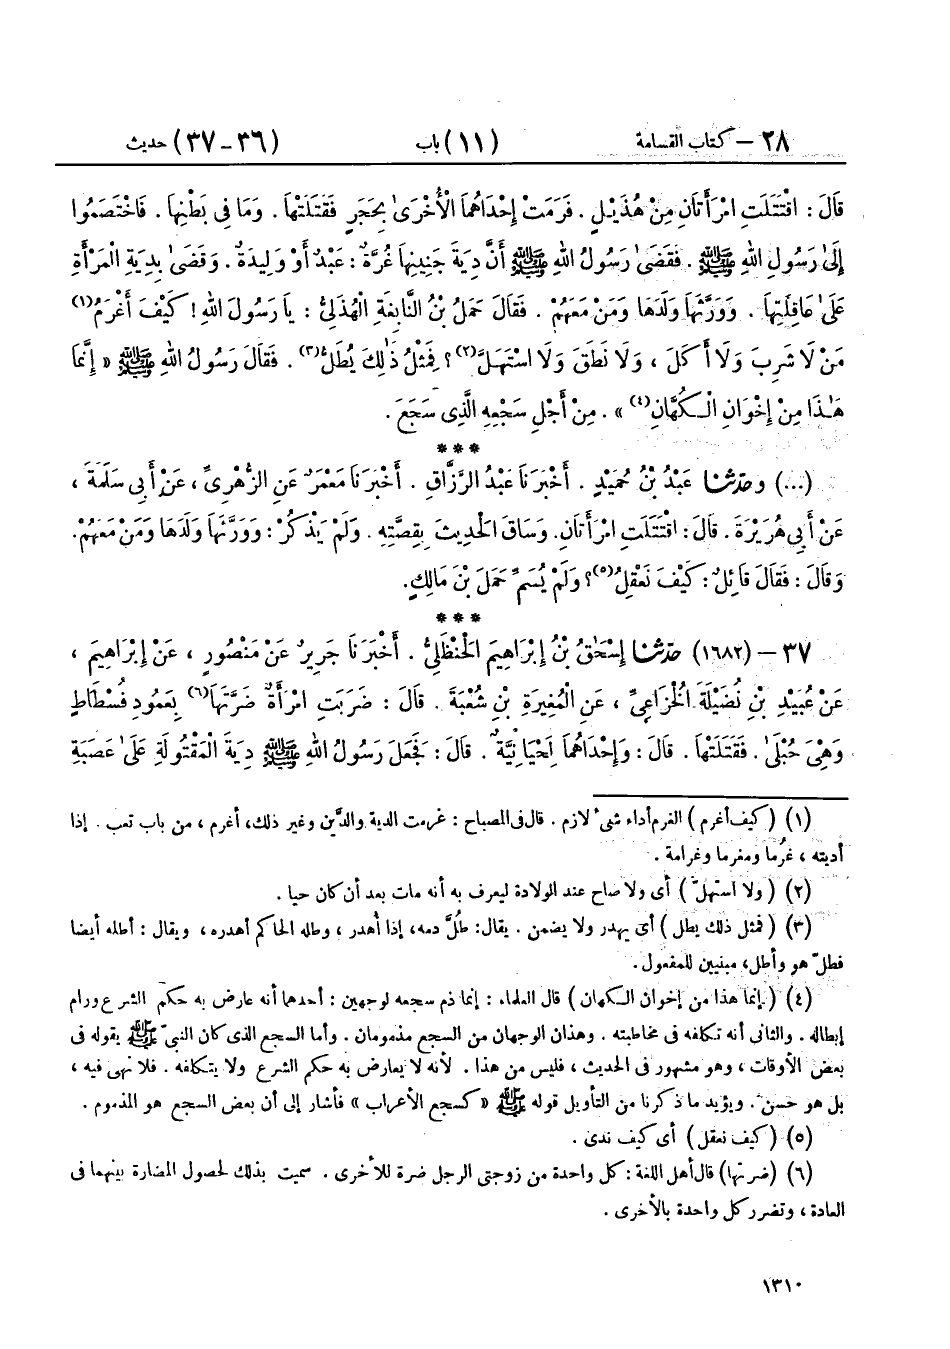 ٢٨ – كتاب القسامة (١١) باب (٣٦-٣٧) حديث
قَالَ : اقْتَتَلَتِ امْرَأَتَانِ مِنْ هُذَيْلٍ . فَرَمَتْ إِحْدَاهُمَا الْأُخْرَىٰ بِحَجَرٍ فَقَتَلَتْهَا . وَمَا فِي بَطْنِهَا . فَاخْتَصَمُوا
إِلَىٰ رَسُولِ اللهِ ﷺ . فَقَضَىٰ رَسُولُ اللهِ ﷺ أَنَّ دِيَةَ جَنِينِهَا غُرَّةٌ : عَبْدٌ أَوْ وَلِيدَةٌ . وَقَضَىٰ بِدِيَةِ الْمَرْأَةِ
عَلَىٰ عَاقِلَتِهَا . وَوَرَّثَهَا وَلَدَهَا وَمَنْ مَعَهُمْ . فَقَالَ حَمَلُ بْنُ النَّابِغَةِ الْهُذَلِيُّ : يَا رَسُولَ اللهِ ! كَيْفَ أَغْرَمُ(١)
مَنْ لَا شَرِبَ وَلَا أَكَلَ ، وَلَا نَطَقَ وَلَا اسْتَهَلَّ(٢) ؟ فَمِثْلُ ذَٰلِكَ يُطَلُّ(٣) . فَقَالَ رَسُولُ اللهِ ﷺ « إِنَّمَا
هَٰذَا مِنْ إِخْوَانِ الْكُهَّانِ(٤) » . مِنْ أَجْلِ سَجْعِهِ الَّذِي سَجَعَ .
***
(...) وحَدَّثَنَا عَبْدُ بْنُ حُمَيْدٍ . أَخْبَرَنَا عَبْدُ الرَّزَّاقِ . أَخْبَرَنَا مَعْمَرٌ عَنِ الزُّهْرِيِّ ، عَنْ أَبِي سَلَمَةَ ،
عَنْ أَبِي هُرَيْرَةَ . قَالَ : اقْتَتَلَتِ امْرَأَتَانِ. وَسَاقَ الْحَدِيثَ بِقِصَّتِهِ . وَلَمْ يَذْكُرْ : وَوَرَّثَهَا وَلَدَهَا وَمَنْ مَعَهُمْ.
وَقَالَ : فَقَالَ قَائِلٌ : كَيْفَ نَعْقِلُ(٥)؟ وَلَمْ يُسَمِّ حَمَلَ بْنَ مَالِكٍ.
***
٣٧ – (١٦٨٢) حَدَّثَنَا إِسْحَٰقُ بْنُ إِبْرَاهِيمَ الْحَنْظَلِيُّ . أَخْبَرَنَا جَرِيرٌ عَنْ مَنْصُورٍ ، عَنْ إِبْرَاهِيمَ ،
عَنْ عُبَيْدِ بْنِ نُضَيْلَةَ الْخُزَاعِيِّ ، عَنِ الْمُغِيرَةِ بْنِ شُعْبَةَ . قَالَ : ضَرَبَتِ امْرَأَةٌ ضَرَّتَهَا(٦) بِعَمُودِ فُسْطَاطٍ
وَهِيَ حُبْلَىٰ . فَقَتَلَتْهَا . قَالَ : وَإِحْدَاهُمَا لِحْيَانِيَّةٌ . قَالَ : فَجَعَلَ رَسُولُ اللهِ ﷺ دِيَةَ الْمَقْتُولَةِ عَلَىٰ عَصَبَةِ
(١) ( كيف أغرم ) الغرم أداء شيء لازم . قال في المصباح : غرمت الدية والدَّين وغير ذلك، أغرم ، من باب تعب . إذا
أديته ، غُرما ومغرما وغرامة .
(٢) ( ولا استهلّ ) أي ولا صاح عند الولادة ليعرف به أنه مات بعد أن كان حيا .
(٣) ( فمثل ذلك يطل ) أي يهدر ولا يضمن . يقال: طُلّ دمه، إذا أُهدر ، وطله الحاكم أهدره ، ويقال : أطله أيضا
فطلّ هو وأطل، مبنيين للمفعول.
(٤) ( إنما هذا من إخوان الكهان ) قال العلماء : إنما ذم سجعه لوجهين : أحدها أنه عارض به حكم الشرع ورام
إبطاله . والثاني أنه تكلفه في مخاطبته . وهذان الوجهان من السجع مذمومان . وأما السجع الذي كان النبيّ ﷺ يقوله في
بعض الأوقات ، وهو مشهور في الحديث ، فليس من هذا . لأنه لا يعارض به حكم الشرع ولا يتكلفه . فلا نهى فيه ،
بل هو حسن . ويؤيد ما ذكرنا من التأويل قوله ﷺ « كسجع الأعراب » فأشار إلى أن بعض السجع هو المذموم .
(٥) ( كيف نعقل ) أي كيف ندى .
(٦) (ضرتها) قال أهل اللغة : كل واحدة من زوجتي الرجل ضرة للأخرى . سميت بذلك لحصول المضارة بينهما في
العادة ، وتضرر كل واحدة بالأخرى .
١٣١٠